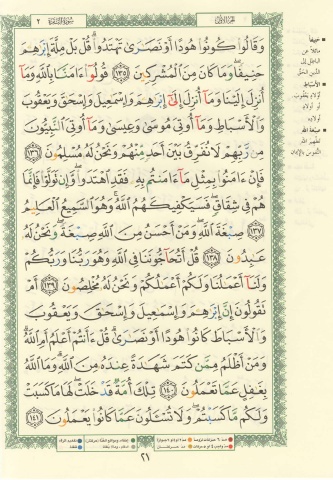 الجزء الأول
سورة البقرة ٢
وَقَالُوا۟ كُونُوا۟ هُودًا أَوْ نَصَـٰرَىٰ تَهْتَدُوا۟ ۗ قُلْ بَلْ مِلَّةَ إِبْرَٰهِـۧمَ
حَنِيفًا ۖ وَمَا كَانَ مِنَ ٱلْمُشْرِكِينَ ١٣٥ قُولُوٓا۟ ءَامَنَّا بِٱللَّهِ وَمَآ
أُنزِلَ إِلَيْنَا وَمَآ أُنزِلَ إِلَىٰٓ إِبْرَٰهِـۧمَ وَإِسْمَـٰعِيلَ وَإِسْحَـٰقَ وَيَعْقُوبَ
وَٱلْأَسْبَاطِ وَمَآ أُوتِىَ مُوسَىٰ وَعِيسَىٰ وَمَآ أُوتِىَ ٱلنَّبِيُّونَ
مِن رَّبِّهِمْ لَا نُفَرِّقُ بَيْنَ أَحَدٍ مِّنْهُمْ وَنَحْنُ لَهُۥ مُسْلِمُونَ ١٣٦
فَإِنْ ءَامَنُوا۟ بِمِثْلِ مَآ ءَامَنتُم بِهِۦ فَقَدِ ٱهْتَدَوا۟ ۖ وَّإِن تَوَلَّوْا۟ فَإِنَّمَا
هُمْ فِى شِقَاقٍ ۖ فَسَيَكْفِيكَهُمُ ٱللَّهُ ۚ وَهُوَ ٱلسَّمِيعُ ٱلْعَلِيمُ
١٣٧ صِبْغَةَ ٱللَّهِ ۖ وَمَنْ أَحْسَنُ مِنَ ٱللَّهِ صِبْغَةً ۖ وَنَحْنُ لَهُۥ
عَـٰبِدُونَ ١٣٨ قُلْ أَتُحَآجُّونَنَا فِى ٱللَّهِ وَهُوَ رَبُّنَا وَرَبُّكُمْ
وَلَنَآ أَعْمَـٰلُنَا وَلَكُمْ أَعْمَـٰلُكُمْ وَنَحْنُ لَهُۥ مُخْلِصُونَ ١٣٩ أَمْ
تَقُولُونَ إِنَّ إِبْرَٰهِـۧمَ وَإِسْمَـٰعِيلَ وَإِسْحَـٰقَ وَيَعْقُوبَ
وَٱلْأَسْبَاطَ كَانُوا۟ هُودًا أَوْ نَصَـٰرَىٰ ۗ قُلْ ءَأَنتُمْ أَعْلَمُ أَمِ ٱللَّهُ ۗ
وَمَنْ أَظْلَمُ مِمَّن كَتَمَ شَهَـٰدَةً عِندَهُۥ مِنَ ٱللَّهِ ۗ وَمَا ٱللَّهُ
بِغَـٰفِلٍ عَمَّا تَعْمَلُونَ ١٤٠ تِلْكَ أُمَّةٌ قَدْ خَلَتْ ۖ لَهَا مَا كَسَبَتْ
وَلَكُم مَّا كَسَبْتُمْ ۖ وَلَا تُسْـَٔلُونَ عَمَّا كَانُوا۟ يَعْمَلُونَ ١٤١
حنيفا
مائلا عن
الباطل إلى
الدين الحق
الأسباط
أولاد يعقوب
أو أولاد
أولاده
صبغة الله
٢١